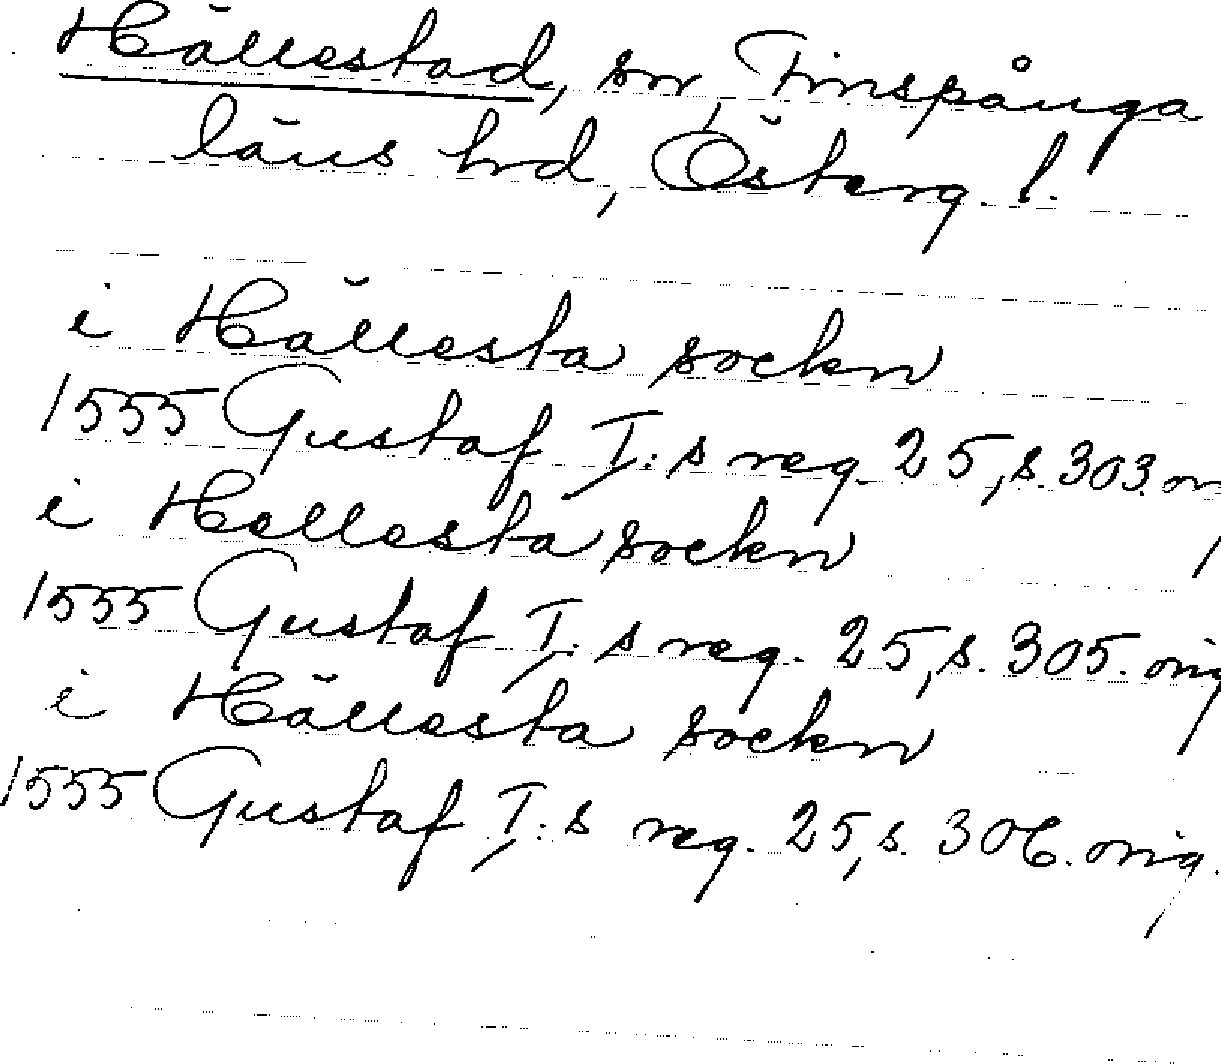 Hällestad, sn, Finspånga
läns hd, Österg. l.
i Hällesta sockn
1555 Gustaf I:s reg. 25, s. 303. or
i Hellesta sockn
1555 Gustaf I:s reg. 25, s. 305. orig
i Hällesta sockn
1555 Gustaf I:s reg. 25, s. 306. orig.